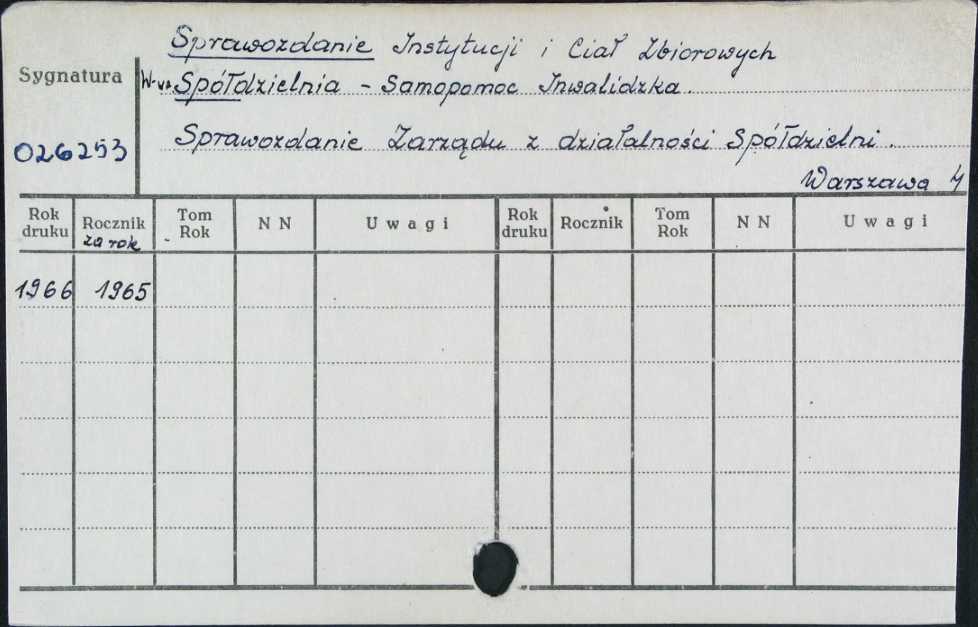 Sprawozdanie Instytucji i Ciał Zbiorowych
Sygnatura
W-wa. Spółdzielnia - Samopomoc Inwalidzka.
026253
Sprawozdanie Zarządu z działalności Spółdzielni.
Warszawa
Rok druku Rocznik za rok Tom Rok N N Uwagi Rok druku Rocznik Tom Rok N N Uwagi
1966 1965